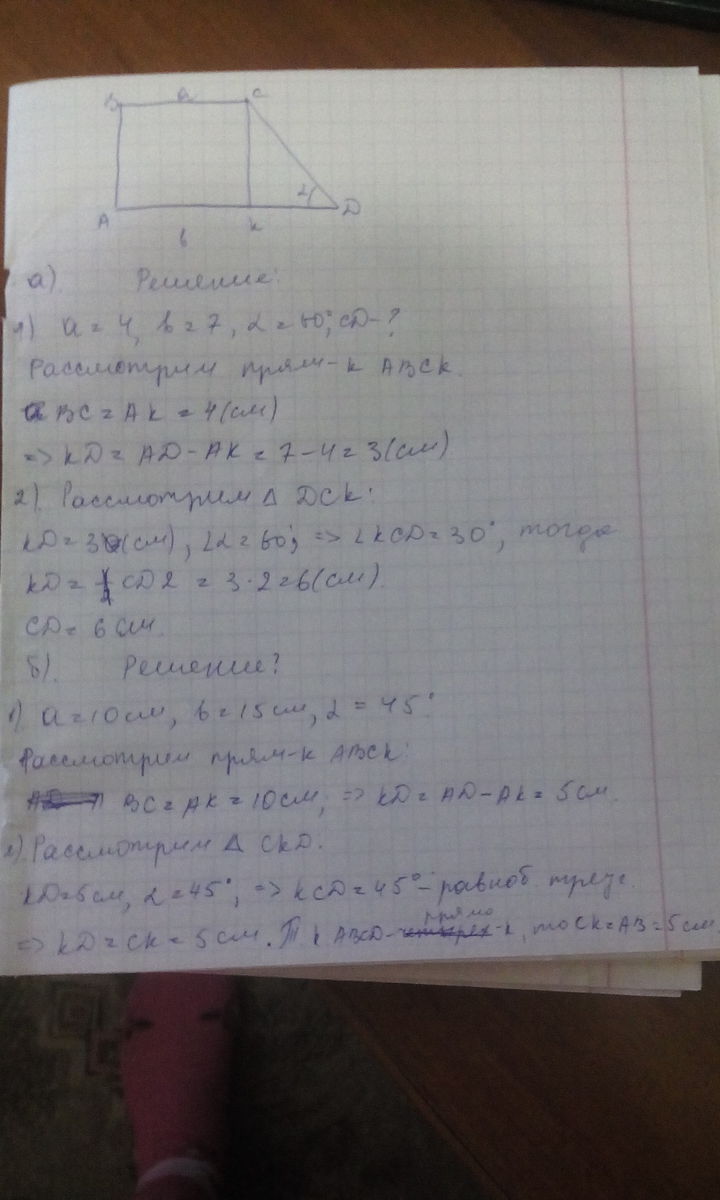 B a C
A K D
α
b
а). Решение:
1) a = 4, b = 7, α = 60°, CD - ?
Рассмотрим прям-к ABCK.
BC = AK = 4 (см)
=> KD = AD - AK = 7 - 4 = 3 (см)
2). Рассмотрим Δ DCK:
KD = 3 (см), ∠α = 60°, => ∠KCD = 30°, тогда
KD = CD2 = 3 · 2 = 6 (см).
CD = 6 см.
б). Решение?
1) a = 10 см, b = 15 см, α = 45°
Рассмотрим прям-к ABCK:
BC = AK = 10 см, => KD = AD - AK = 5 см.
2) Рассмотрим Δ CKD.
KD = 5 см, α = 45°, => KCD = 45° - равноб. треуг.
=> KD = CK = 5 см. Т к ABCD - прямо-к, то CK = AB = 5 см